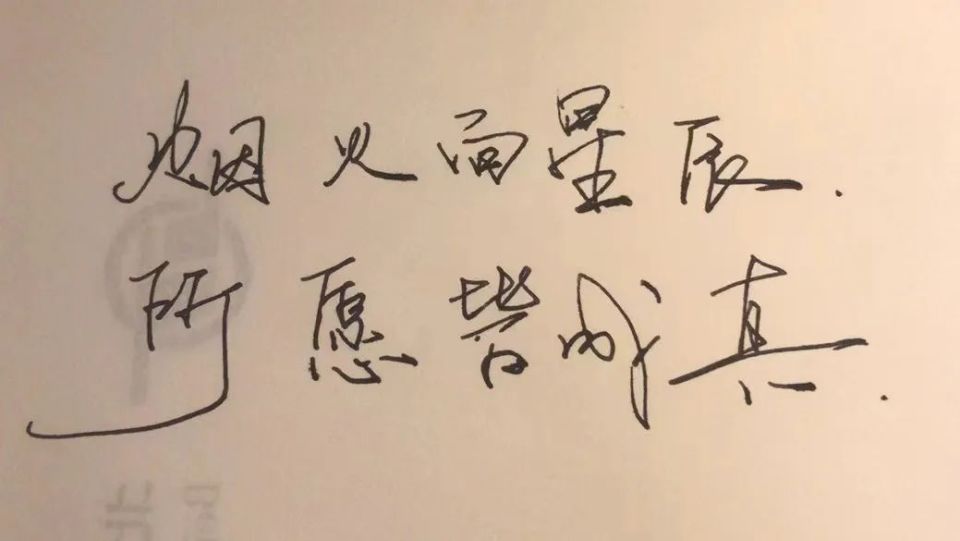 烟火向星辰.
所愿皆成真.